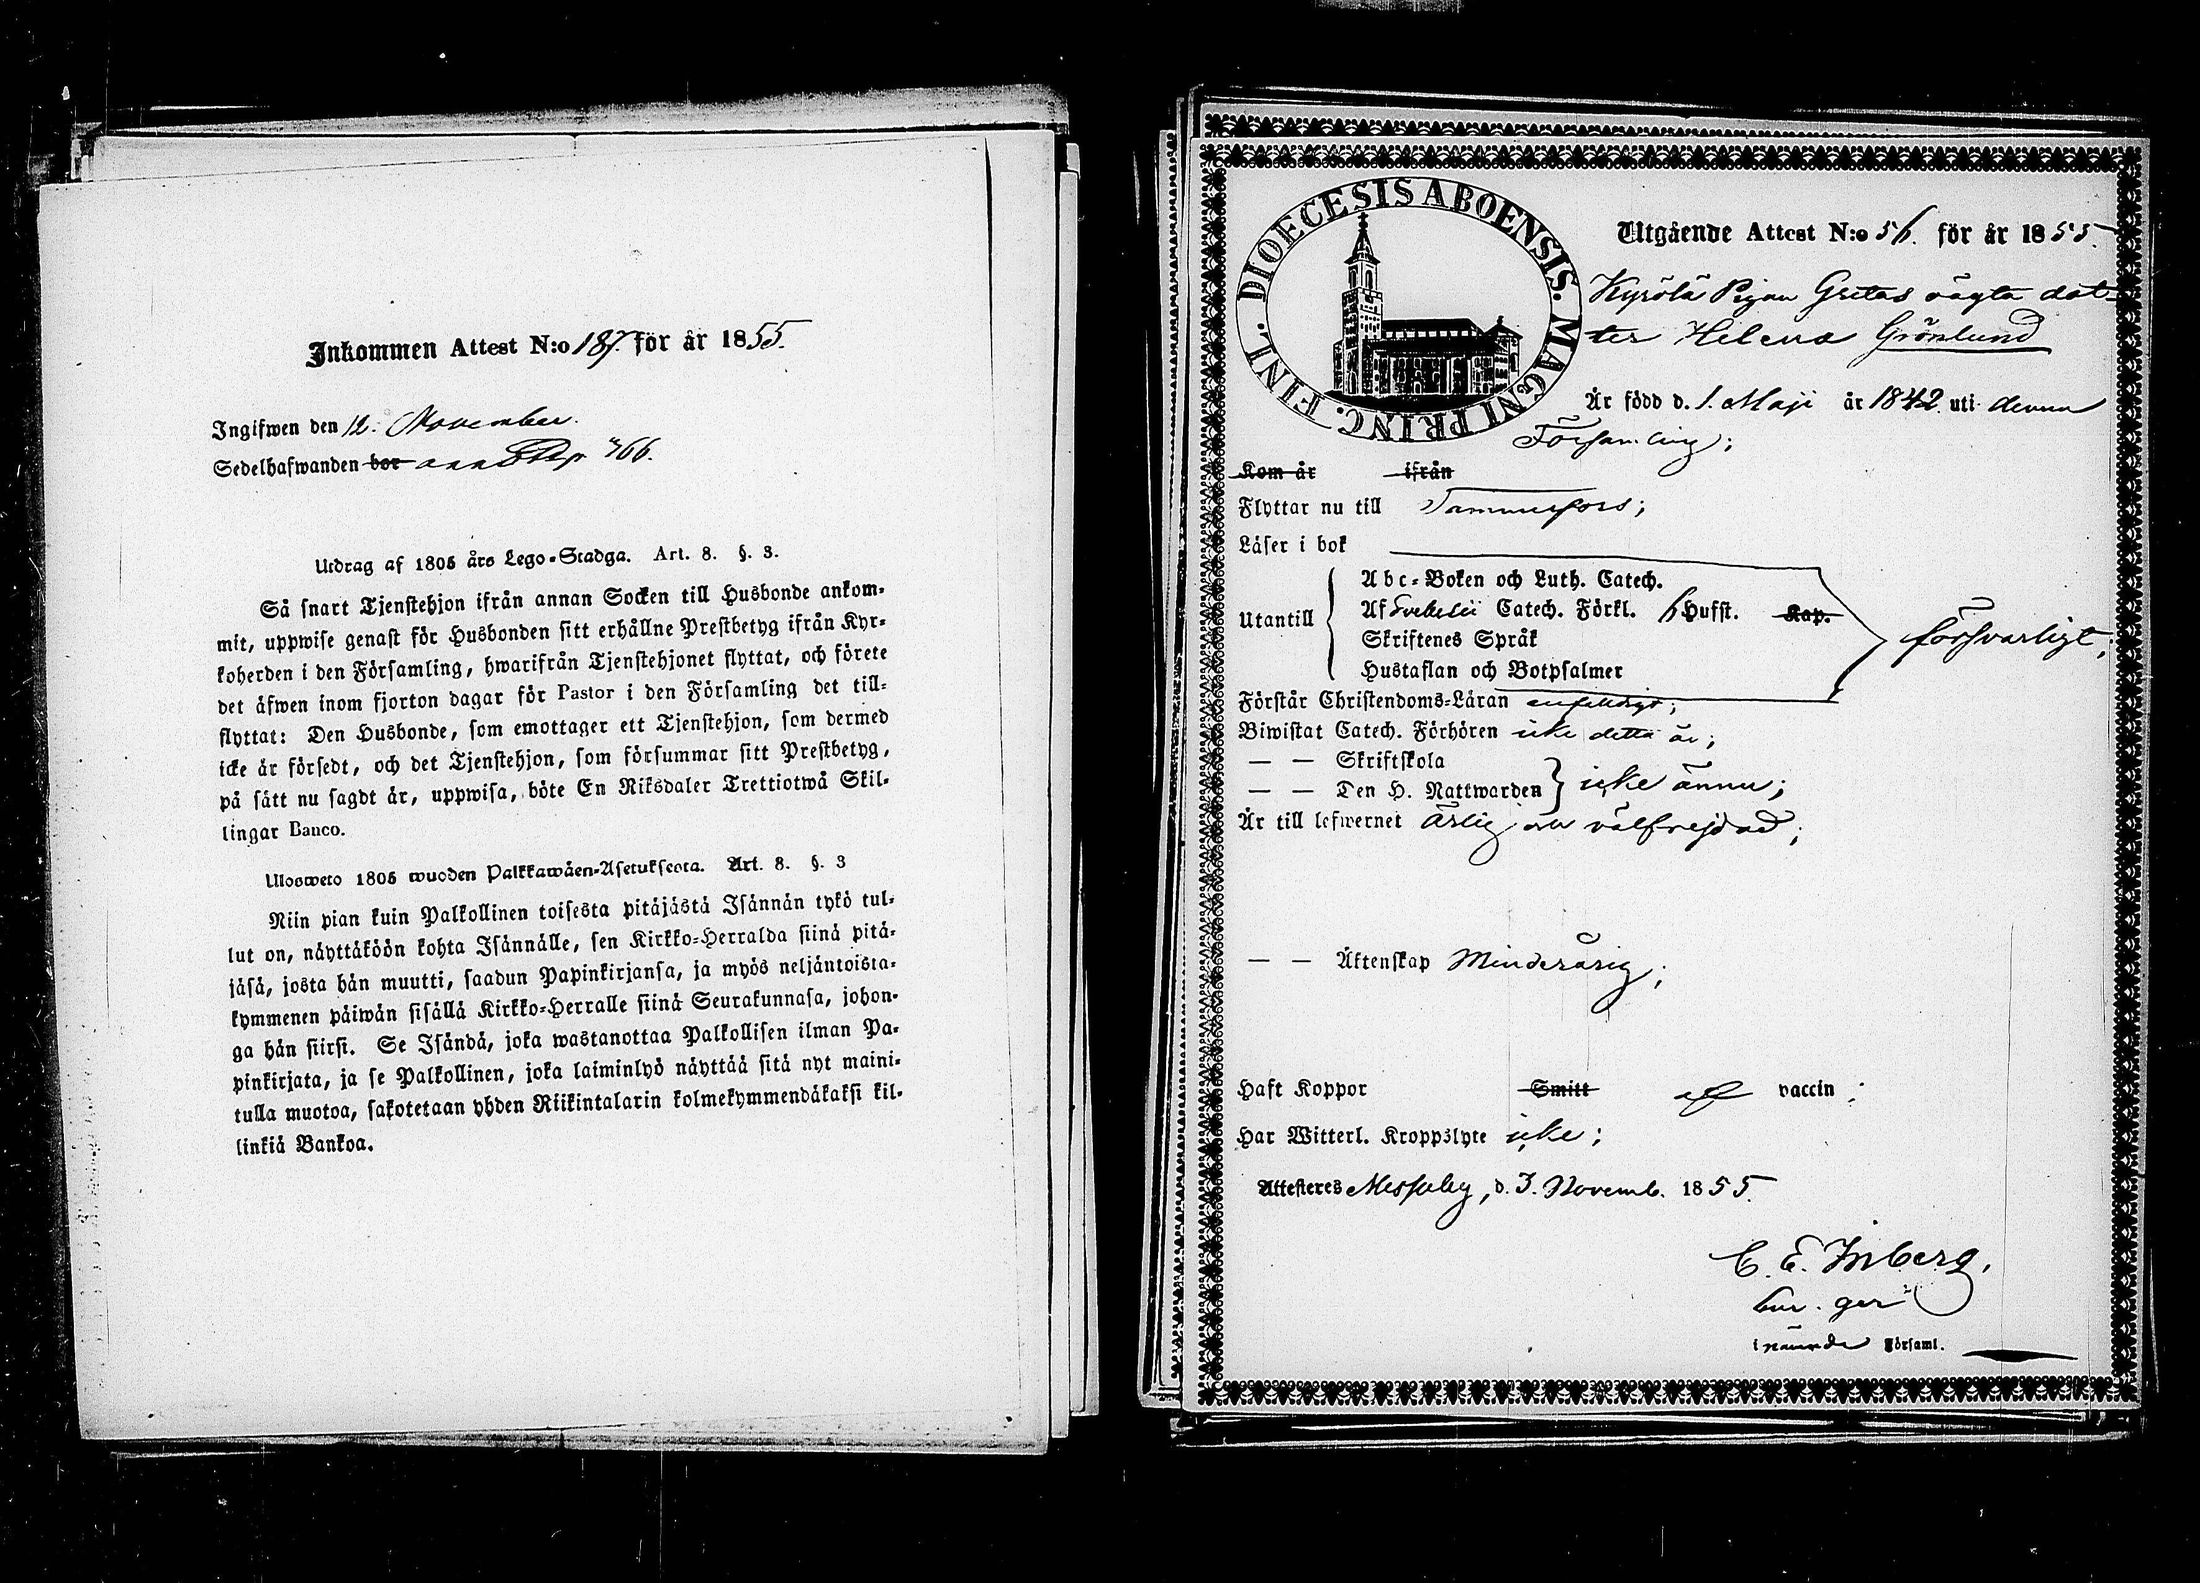 Inkommen Attest N:o 187. för år 1855.
Ingifwen den 12. November.
Sedelhafwanden bor 766.
Utdrag af 1805 års Lego-Stadga. Art. 8. §. 3.
Så snart Tjenstehjon ifrån annan Socken till Husbonde ankom-
mit, uppwise genast för Husbonden sitt erhållne Prestbetyg ifrån Kyr-
koherden i den Församling, hwarifrån Tjenstehjonet flyttat, och förete
det äfwen inom fjorton dagar för Pastor i den Församling det till-
flyttat: Den Husbonde, som emottager ett Tjenstehjon, som dermed
icke är försedt, och det Tjenstehjon, som försummar sitt Prestbetyg,
på sätt nu sagdt är, uppwisa, böte En Riksdaler Trettiotwå Skil-
lingar Banco.
Ulosweto 1805 wuoden Palkkawäen-Asetuksesta. Art. 8. §. 3
Niin pian kuin Palkollinen toisesta pitäjästä Isännän tykö tul-
lut on, näyttäköön kohta Isännälle, sen Kirkko-Herralda siinä pitä-
jäsä, josta hän muutti, saadun Papinkirjansa, ja myös neljäntoista-
kymmenen päiwän sisällä Kirkko-Herralle siinä Seurakunnasa, johon-
ga hän siirsi. Se Isändä, joka wastanottaa Palkollisen ilman Pa-
pinkirjata, ja se Palkollinen, joka laiminlyö näyttää sitä nyt maini-
tulla muotoa, sakotetaan yhden Riikintalarin kolmekymmendäkaksi kil-
linkiä Bankoa.
DIOECESIS ABOENSIS. MAGNI PRINC. FINL.
Utgående Attest N:o 56. för år 1855.
Kyrölä Pigan Gretas oägta dot-
ter Helena Grönlund
Är född d. 1. Maji år 1842. uti denna
Församling;
Kom år ifrån
Flyttar nu till Tammerfors;
Läser i bok
Abc-Boken och Luth. Catech.
Utantill Af Svebelii Catech. Förkl. 6 Hufst. Kap. försvarligt;
Skriftenes Språk
Hustaflan och Botpsalmer
Förstår Christendoms-Läran enfaldigt;
Biwistat Catech. Förhören icke detta år;
— — Skriftskola
— — Den H. Nattwarden icke ännu;
Är till lefwernet ärlig och välfrejdad;
— — Äktenskap Minderårig;
Haft Koppor Smitt af vaccin;
Har Witterl. Kroppslyte icke;
Attesteres Messuby, d. 3. Novemb. 1855.
C. E. Inberg,
i nämnde Församl.